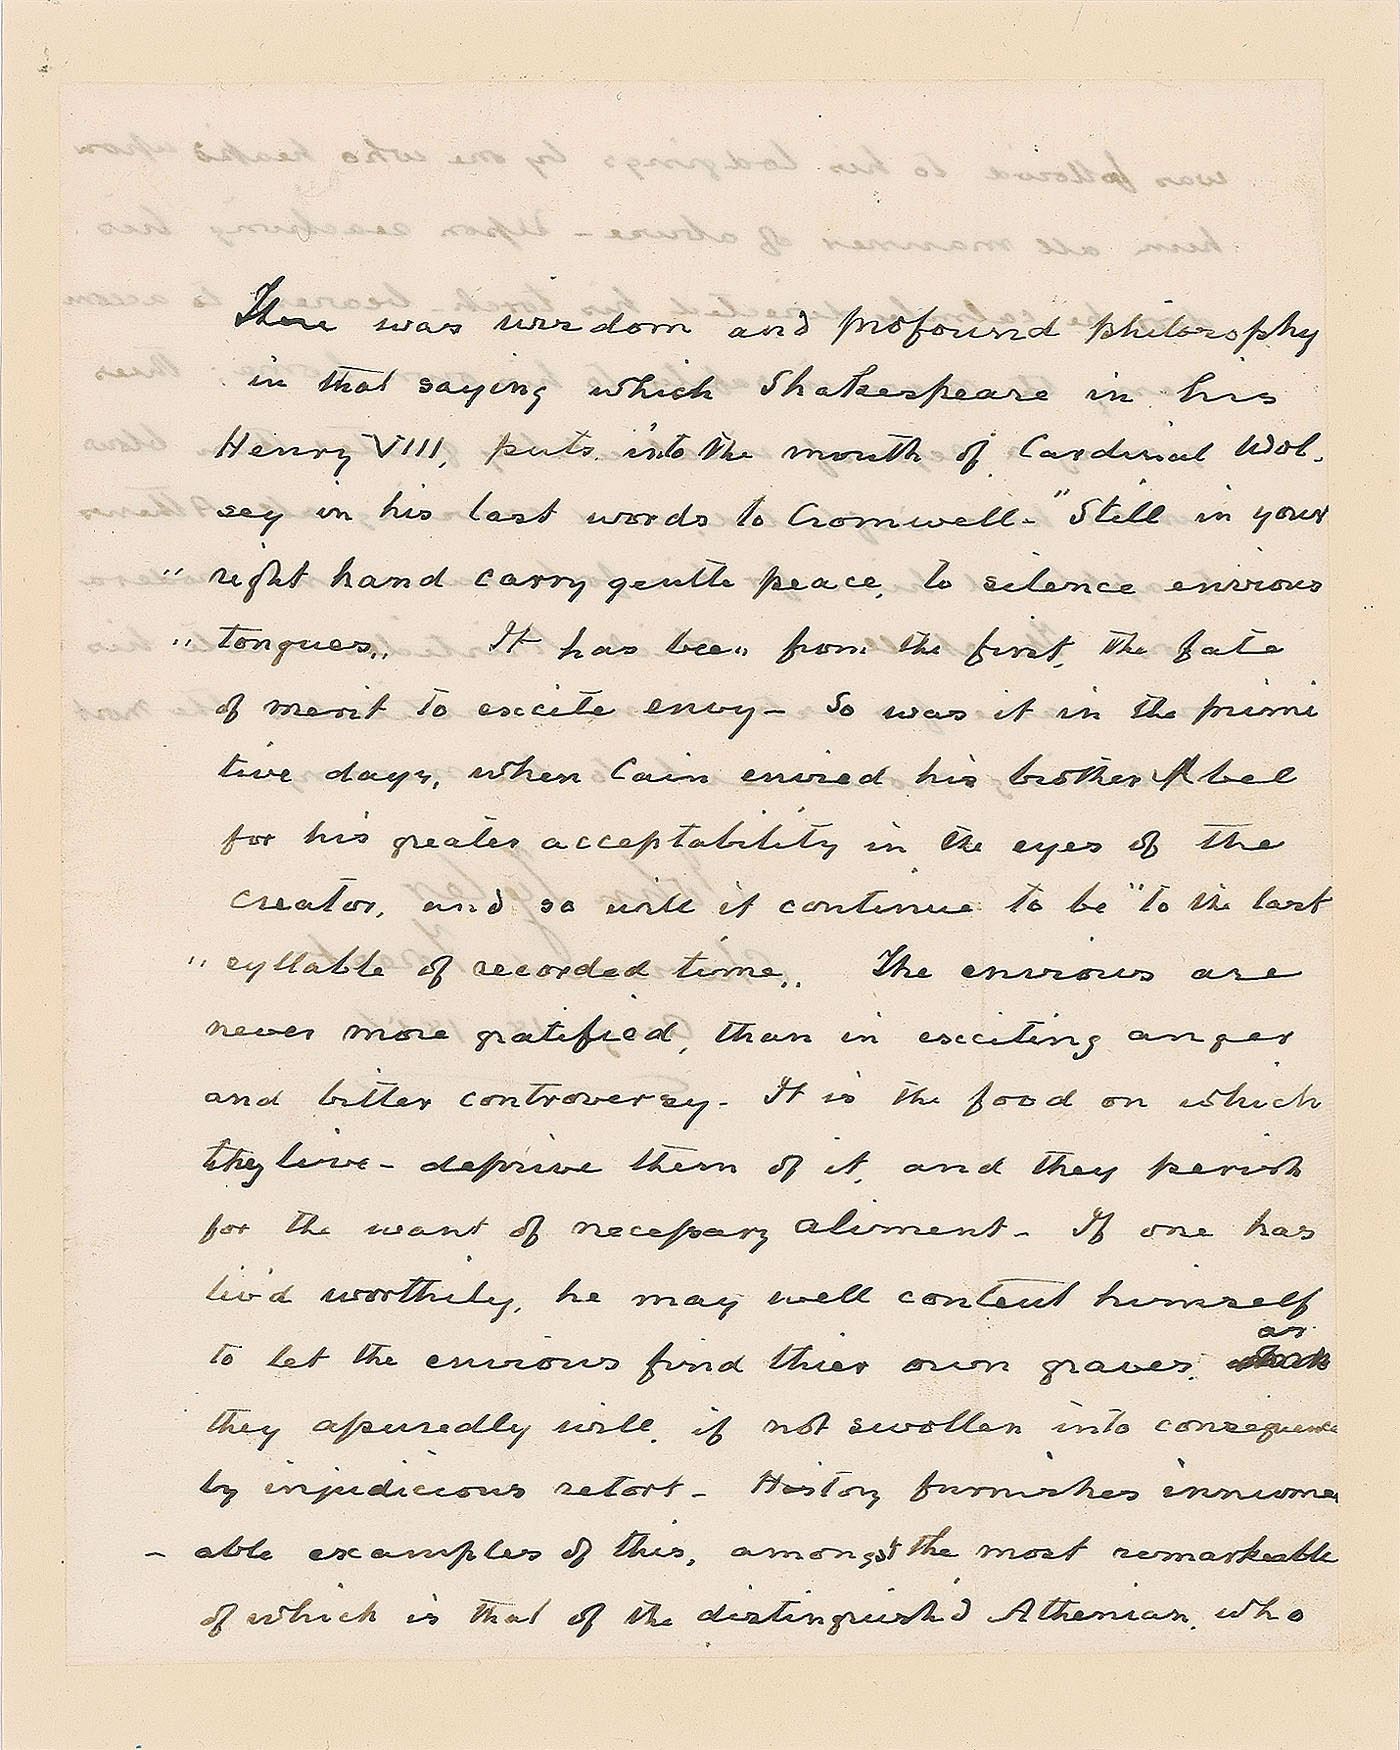 There was wisdom and profound philosophy
in that saying which Shakespeare in his
Henry VIII, puts into the mouth of Cardinal Wol-
sey in his last words to Cromwell- "Still in your
" right hand carry gentle peace, to silence envious
" tongues,, It has been from the first, the fate
of merit to excite envy- So was it in the primi
tive days, when Cain envied his brother Abel
for his greater acceptability in the eyes of the
creator, and so will it continue to be "to the last
" syllable of recorded time,, The envious are
never more gratified, than in exciting anger
and bitter controversy- It is the food on which
they live- deprive them of it, and they perish
for the want of necessary aliment- If one has
liv'd worthily, he may well content himself
to let the envious find thier own graves, as
they assuredly will, if not swollen into consequence
by injudicious retort- History furnishes innumer
- able examples of this, amongst the most remarkeable
of which is that of the distinguish'd Athenian, who